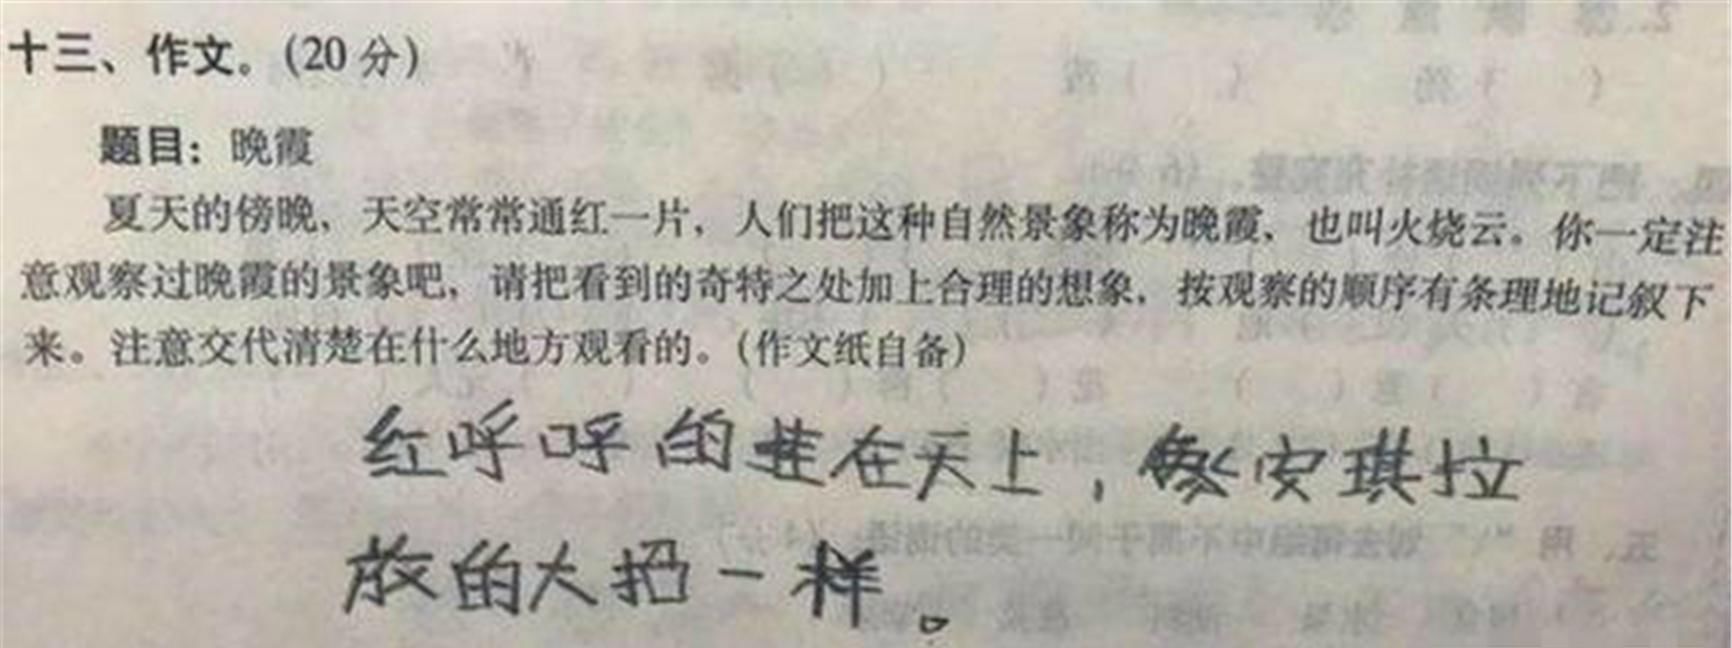 十三、作文。(20分)
题目：晚霞
夏天的傍晚，天空常常通红一片，人们把这种自然景象称为晚霞，也叫火烧云。你一定注
意观察过晚霞的景象吧，请把看到的奇特之处加上合理的想象，按观察的顺序有条理地记叙下
来。注意交代清楚在什么地方观看的。(作文纸自备)
红呼呼的挂在天上，像安琪拉
放的大招一样。